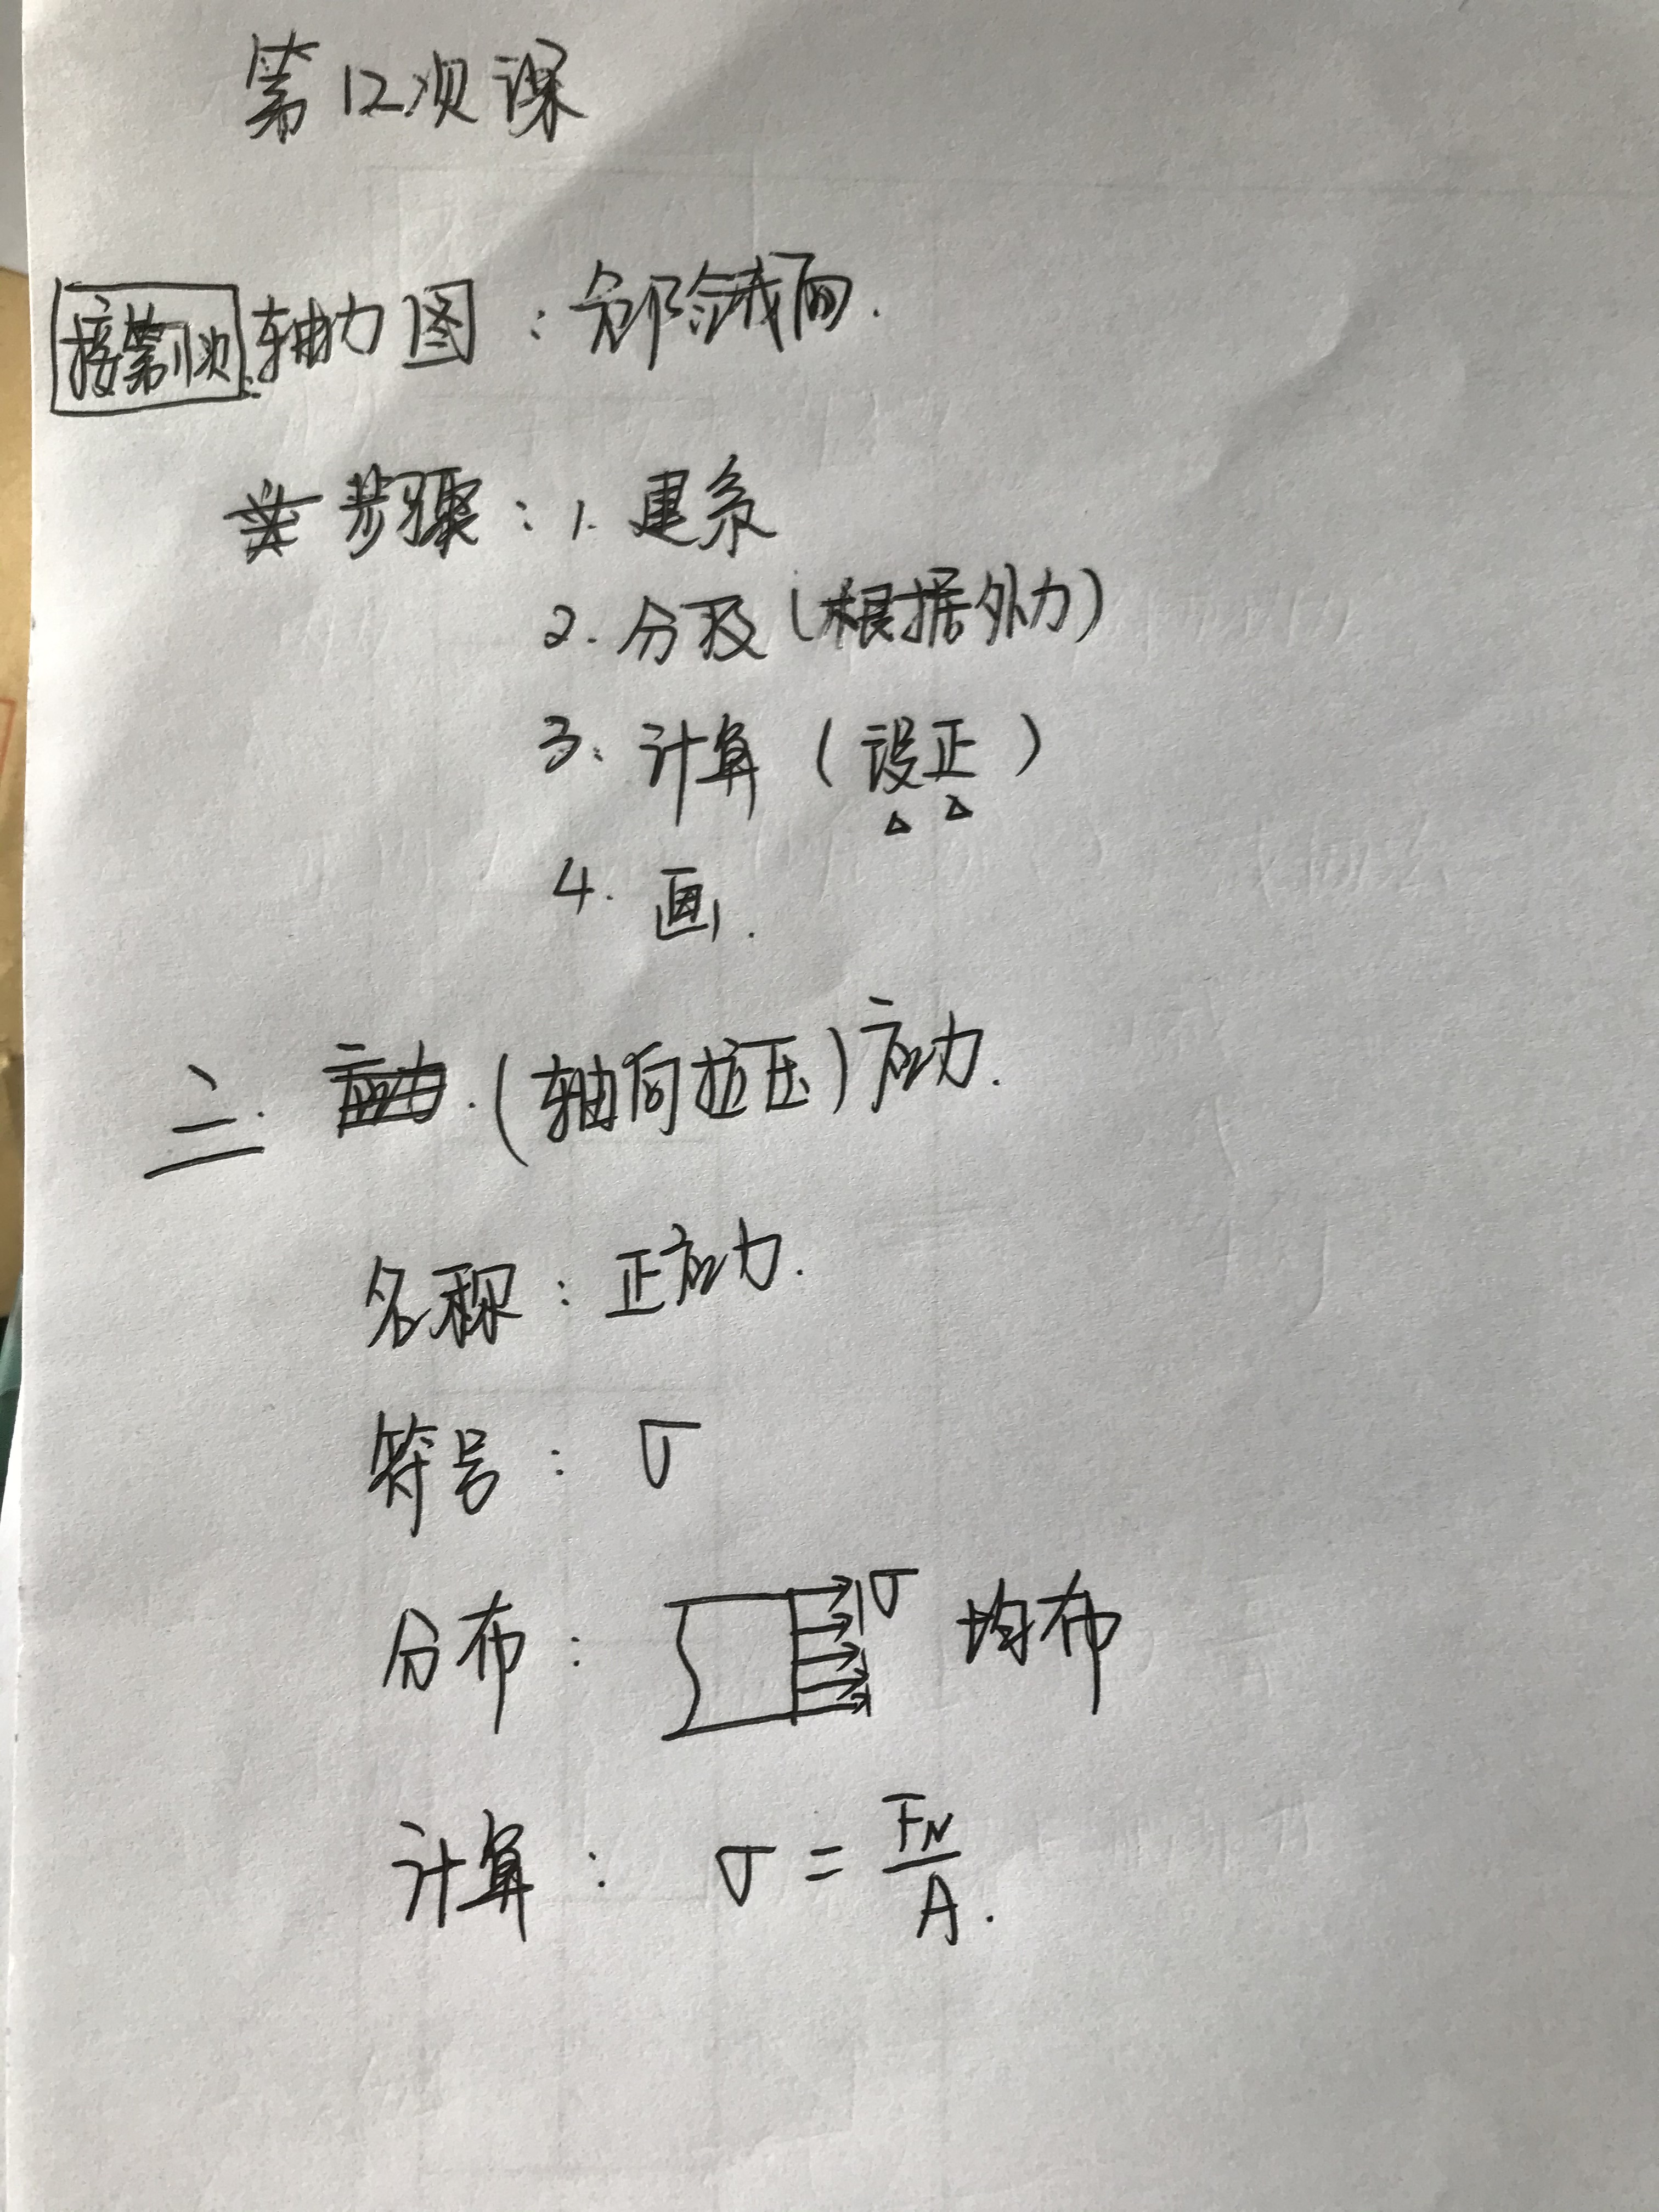 第12次课
接第11次 轴力图：危险截面.
步骤：1. 建系
2. 分段(根据外力)
3. 计算(设正)
4. 画.
二. (轴向拉压)应力.
名称：正应力.
符号：σ
分布：σ 均布
计算：σ = F_N/A.